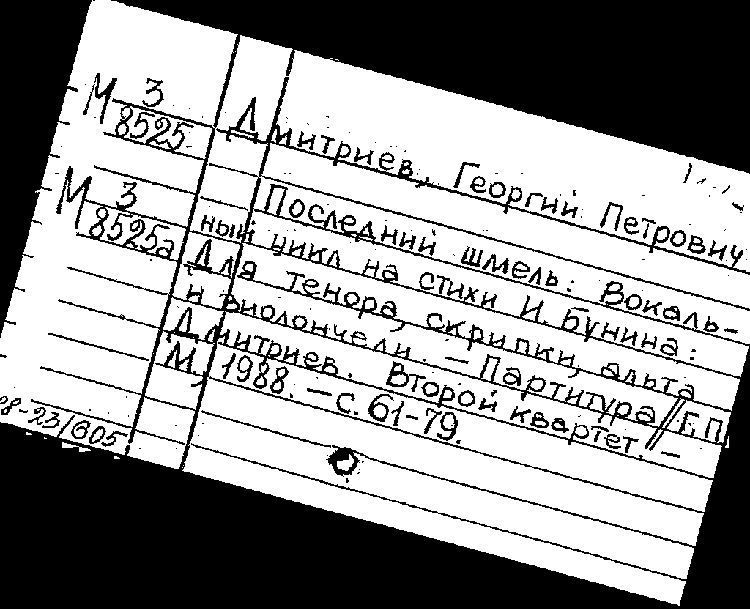 М 3
8525
Дмитриев, Георгий Петрович
М 3
8525а
Последний шмель: Вокаль-
ный цикл на стихи И. Бунина:
Для тенора, скрипки, альта
и виолончели. – Партитура//Г.П.
Дмитриев. Второй квартет. –
М, 1988. – с. 61-79.
88-23/605